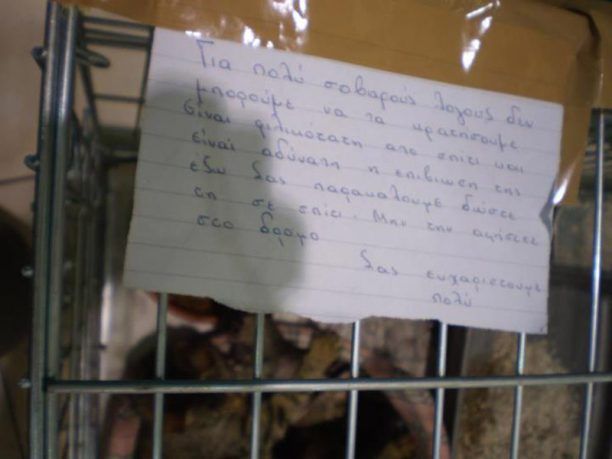 Για πολύ σοβαρούς λόγους δεν
μπορούμε να τα κρατήσουμε
Είναι φιλικότατη απο σπίτι και
είναι αδύνατη η επιβίωση της
έξω Σας παρακαλούμε δώστε
τη σε σπίτι. Μην την αφήσετε
στο δρόμο
Σας ευχαριστούμε
πολύ